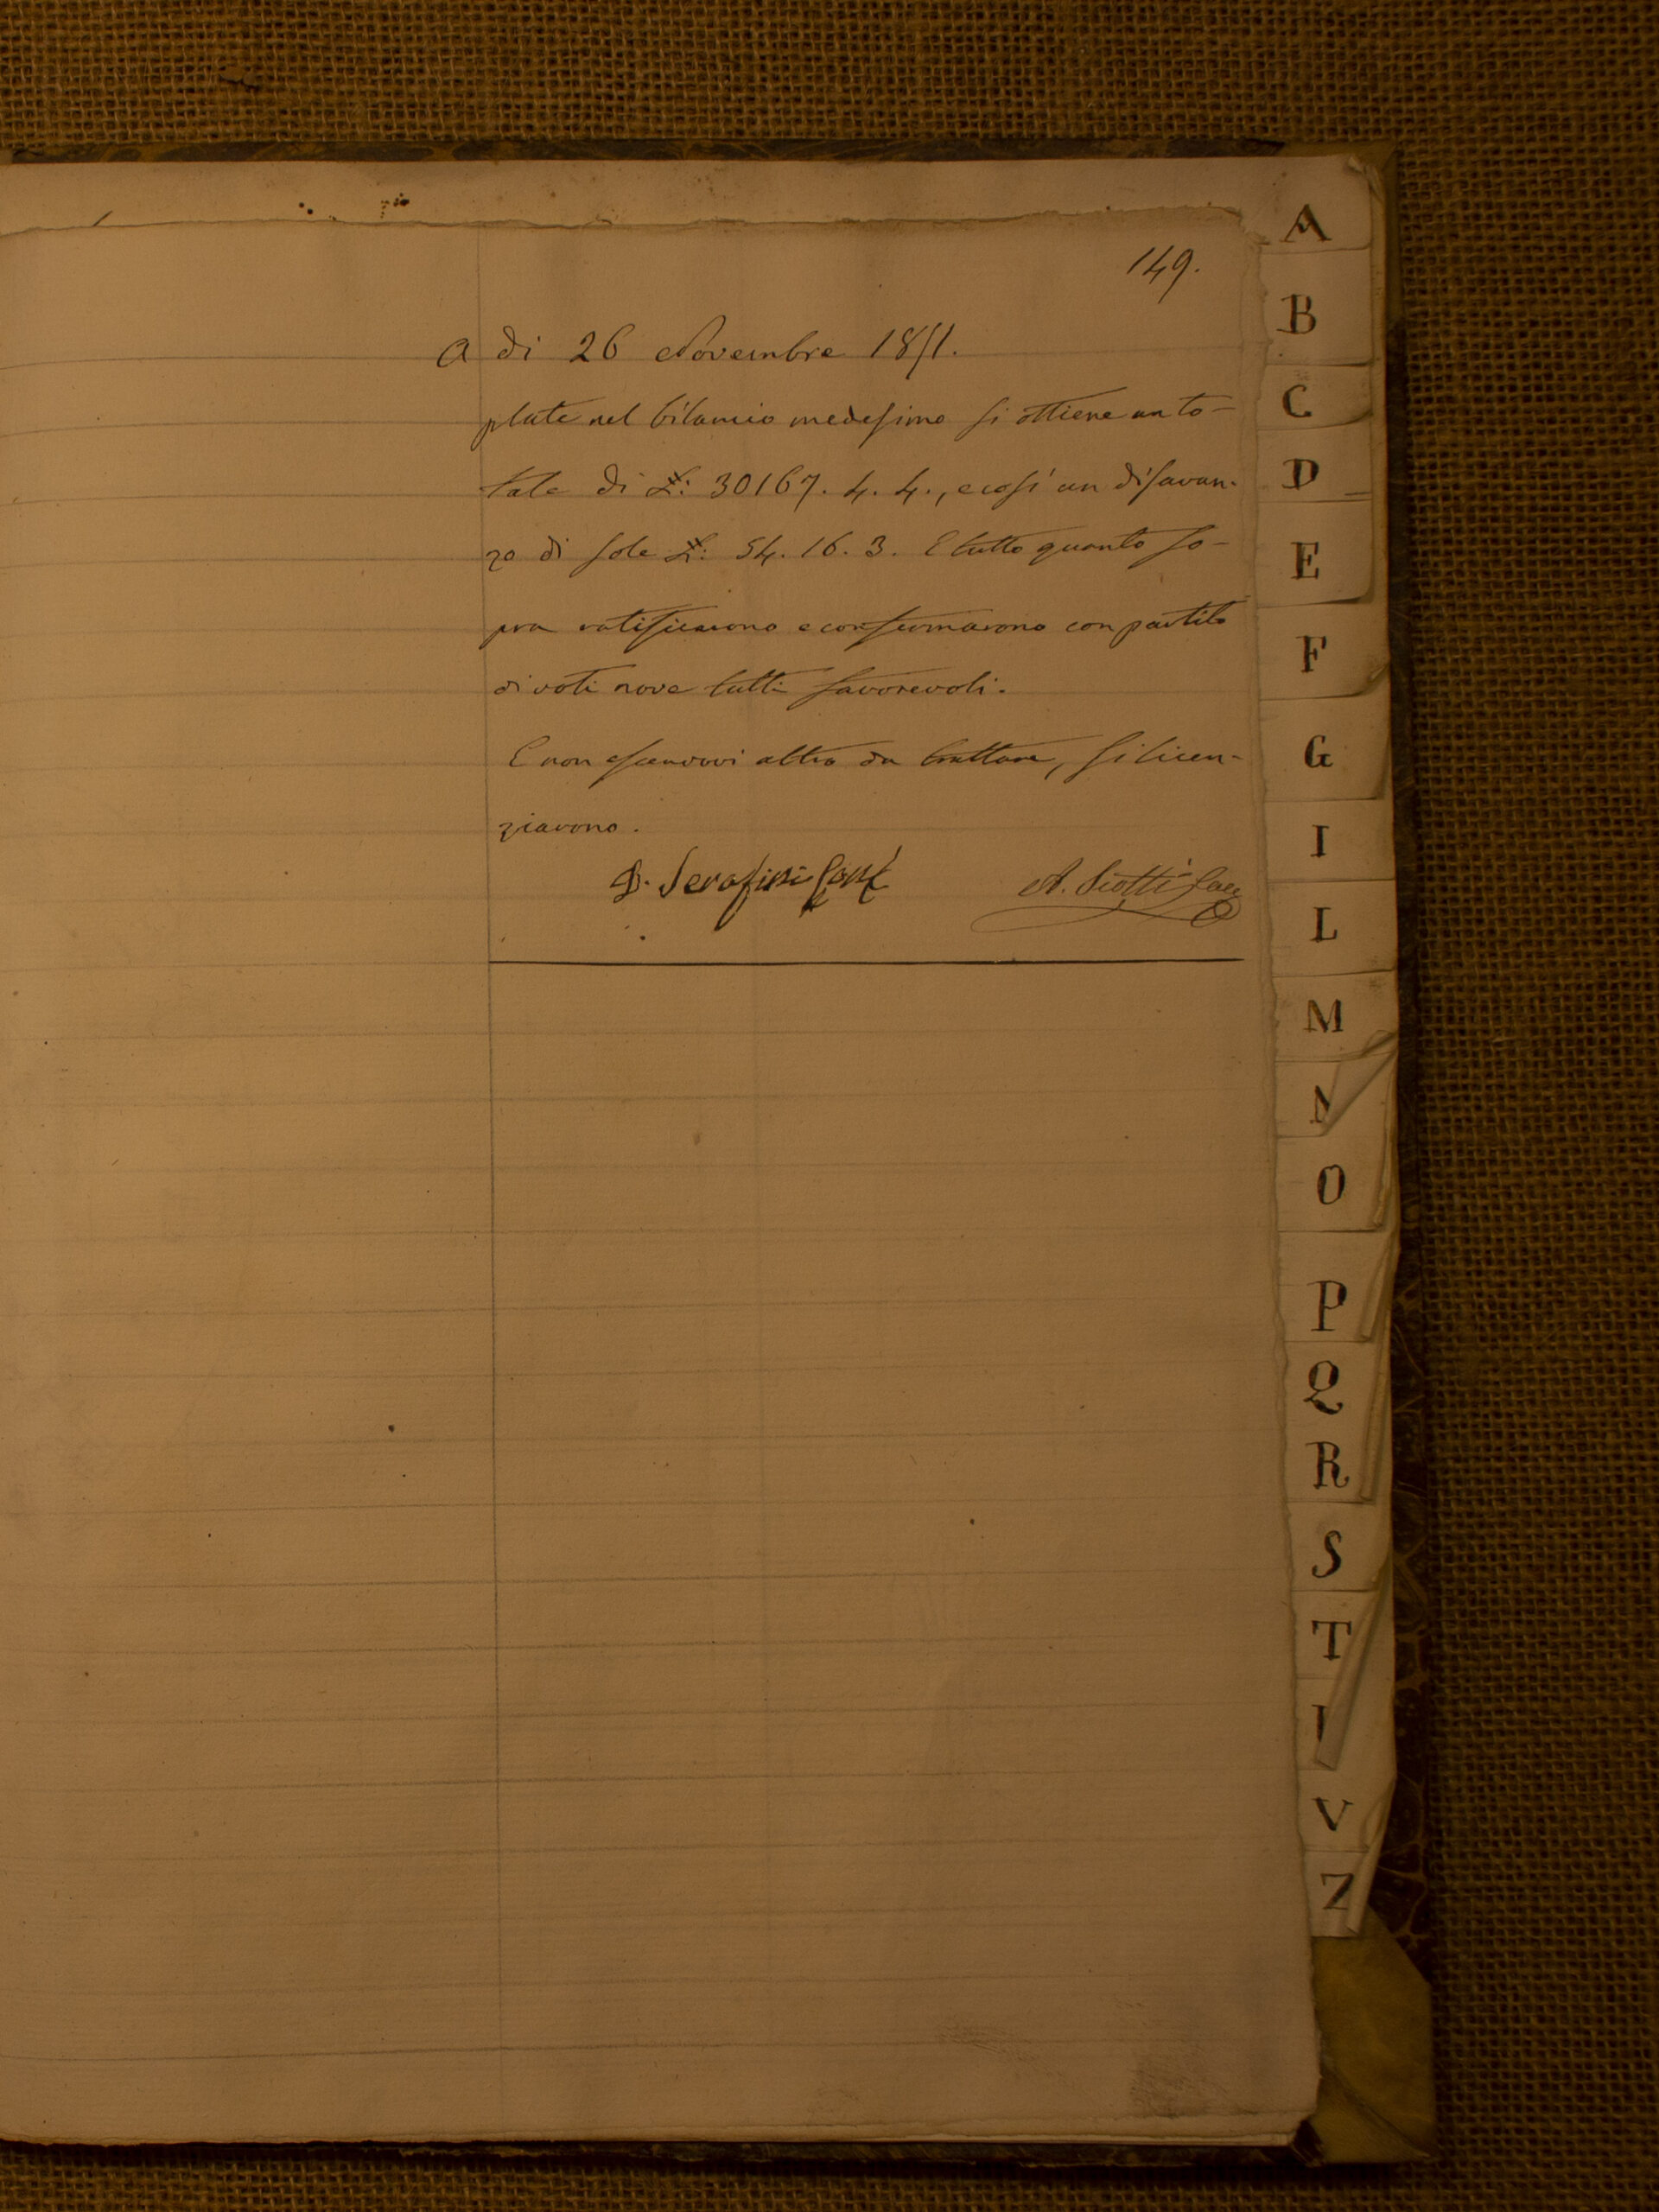 149.
A di 26 Novembre 1851.
plate nel bilancio medesimo si ottiene un to-
tale di £: 30167. 4. 4., e così un disavan-
zo di sole £: 54. 16. 3. E tutto quanto so-
pra ratificarono e confermarono con partito
di voti nove tutti favorevoli.
E non essendovi altro da trattare, si licen-
ziarono.
D. Serafini Gonf
A.
A
B
C
D
E
F
G
I
L
M
N
O
P
Q
R
S
T
V
Z